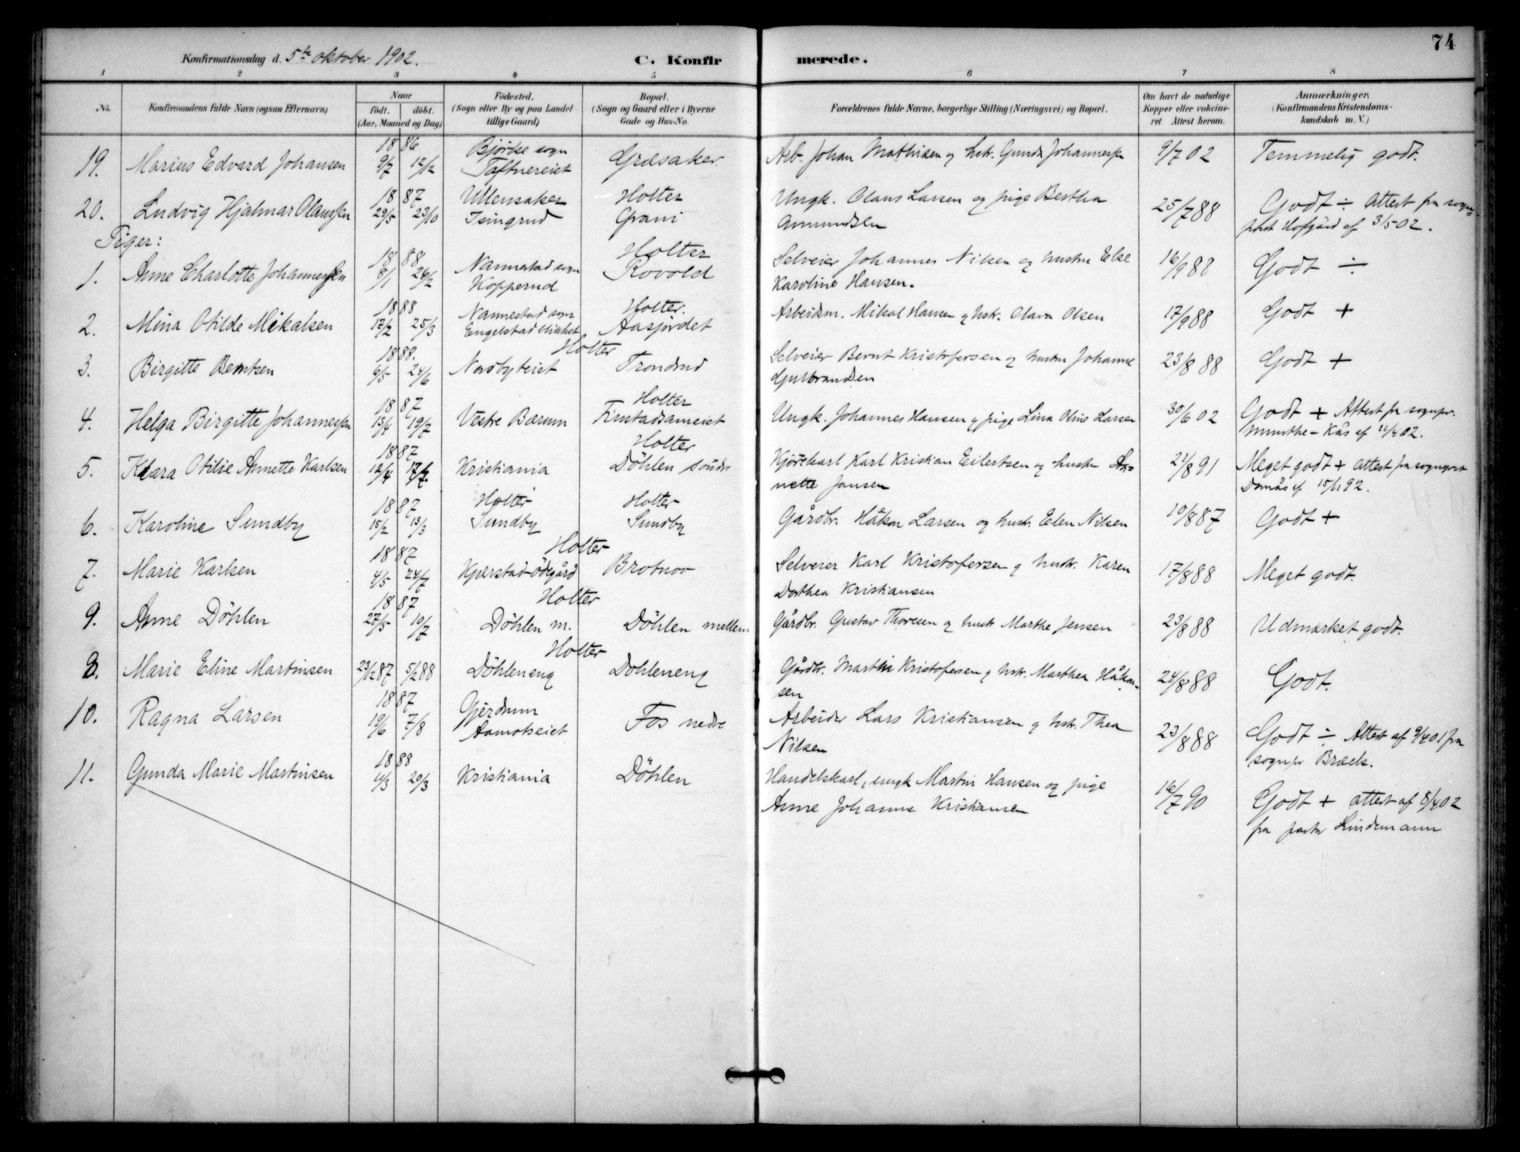 74
Konfirmationsdag d. 5te oktober 1902.
C. Konfirmerede.
1 2 3 4 5 6 7 8
No. Konfirmandens fulde Navn (ogsaa Efternavn) Naar født. døbt. (Aar, Maaned og Dag) Fødested. (Sogn eller By og paa Landet tillige Gaard) Bopæl. (Sogn og Gaard eller i Byerne Gade og Hus-No. Forældrenes fulde Navne, borgerlige Stilling (Næringsvei) og Bopæl. Om havt de naturlige Kopper eller vakcineret Attest herom. Anmærkninger. (Konfirmandens Kristendomskundskab m. V.)
18 86 Bjørke sogn
19. Marius Edvard Johansen 9/7 12/12 Græsaker Arb. Johan Mathisen og hstr. Gunda Johannessen 9/7 02 Temmelig godt.
18 87 Ullensaker Holter Ungk. Olaus Larsen og pige Bertha
20. Ludvig Hjalmar Olaussen 29/5 23/10 Isingrud Grani Amundsen 25/7 88 Godt ÷ Attest fra sogne-
prest Hofgård af 3/5 02.
Piger:
18 88 Nannestad sogn Holter Selveier Johannes Nilsen og hustru Else
1. Anne Charlotte Johannessen 8/1 26/2 Kopperud Kovold Karoline Hansen. 16/9 88 Godt ÷
18 88 Nannestad sogn Holter.
2. Mina Otilde Mikalsen 12/2 25/3 Engelstad Aasjordet Arbeidsm. Mikal Hansen og hstr. Olava Olsen 17/9 88 Godt +
18 88. Holter Selveier Bernt Kristofersen og hustru Johanne
3. Birgitte Berntsen 6/5 24/6 Nordbyeiet Trondrud Gulbrandsen 23/8 88 Godt +
18 87 Holter
4. Helga Birgitte Johannessen 13/6 19/7 Vestre Bærum Finstadsameiet Ungk. Johannes Hansen og pige Lina Oline Larsen 30/6 02 Godt + Attest fra sognepr.
Munthe-Kås af 11/4 02.
18 87 Holter
5. Klara Otilie Annette Karlsen 12/4 17/7 Kristiania Döhlen søndre Kjørekarl Karl Kristian Eilertsen og hustru An-
nette Jansen 21/8 91 Meget godt + Attest fra sogneprst
Damås af 15/1 92.
18 87 Holter Holter
6. Karoline Sundby 15/2 13/3 Sundby Sundby Gårdbr. Håkon Larsen og hustr. Elen Nilsen 10/8 87 Godt +
18 87 Holter
7. Marie Karlsen 4/5 24/7 Kjærstad-ödegård Brotnov Selveier Karl Kristofersen og hustr. Karen
Dorthea Kristiansen 17/8 88 Meget godt.
18 87 Holter
9. Anne Döhlen 27/5 10/7 Döhlen m. Döhlen mellem Gårdbr. Gustav Thoresen og hustr. Marthe Jensen 23/8 88 Udmærket godt.
Holter
8. Marie Eline Martinsen 23/12 87 5/2 88 Döhleneng Döhleneng Gårdbr. Martin Kristofersen og hstr. Marthea Håkon-
sen 24/8 88 Godt.
18 87 Gjerdrum
10. Ragna Larsen 19/6 7/8 Aamotseiet Fos nedre Arbeider Lars Kristiansen og hstr. Thea
Nilsen 23/8 88 Godt ÷ Attest af 9/4 01 fra
sognepr Bræck.
18 88
11. Gunda Marie Martinsen 4/3 20/3 Kristiania Döhlen Handelskarl, ungk Martin Hansen og pige
Anne Johanne Kristiansen 16/7 90 Godt + attest af 8/4 02
fra pastor Lindemann